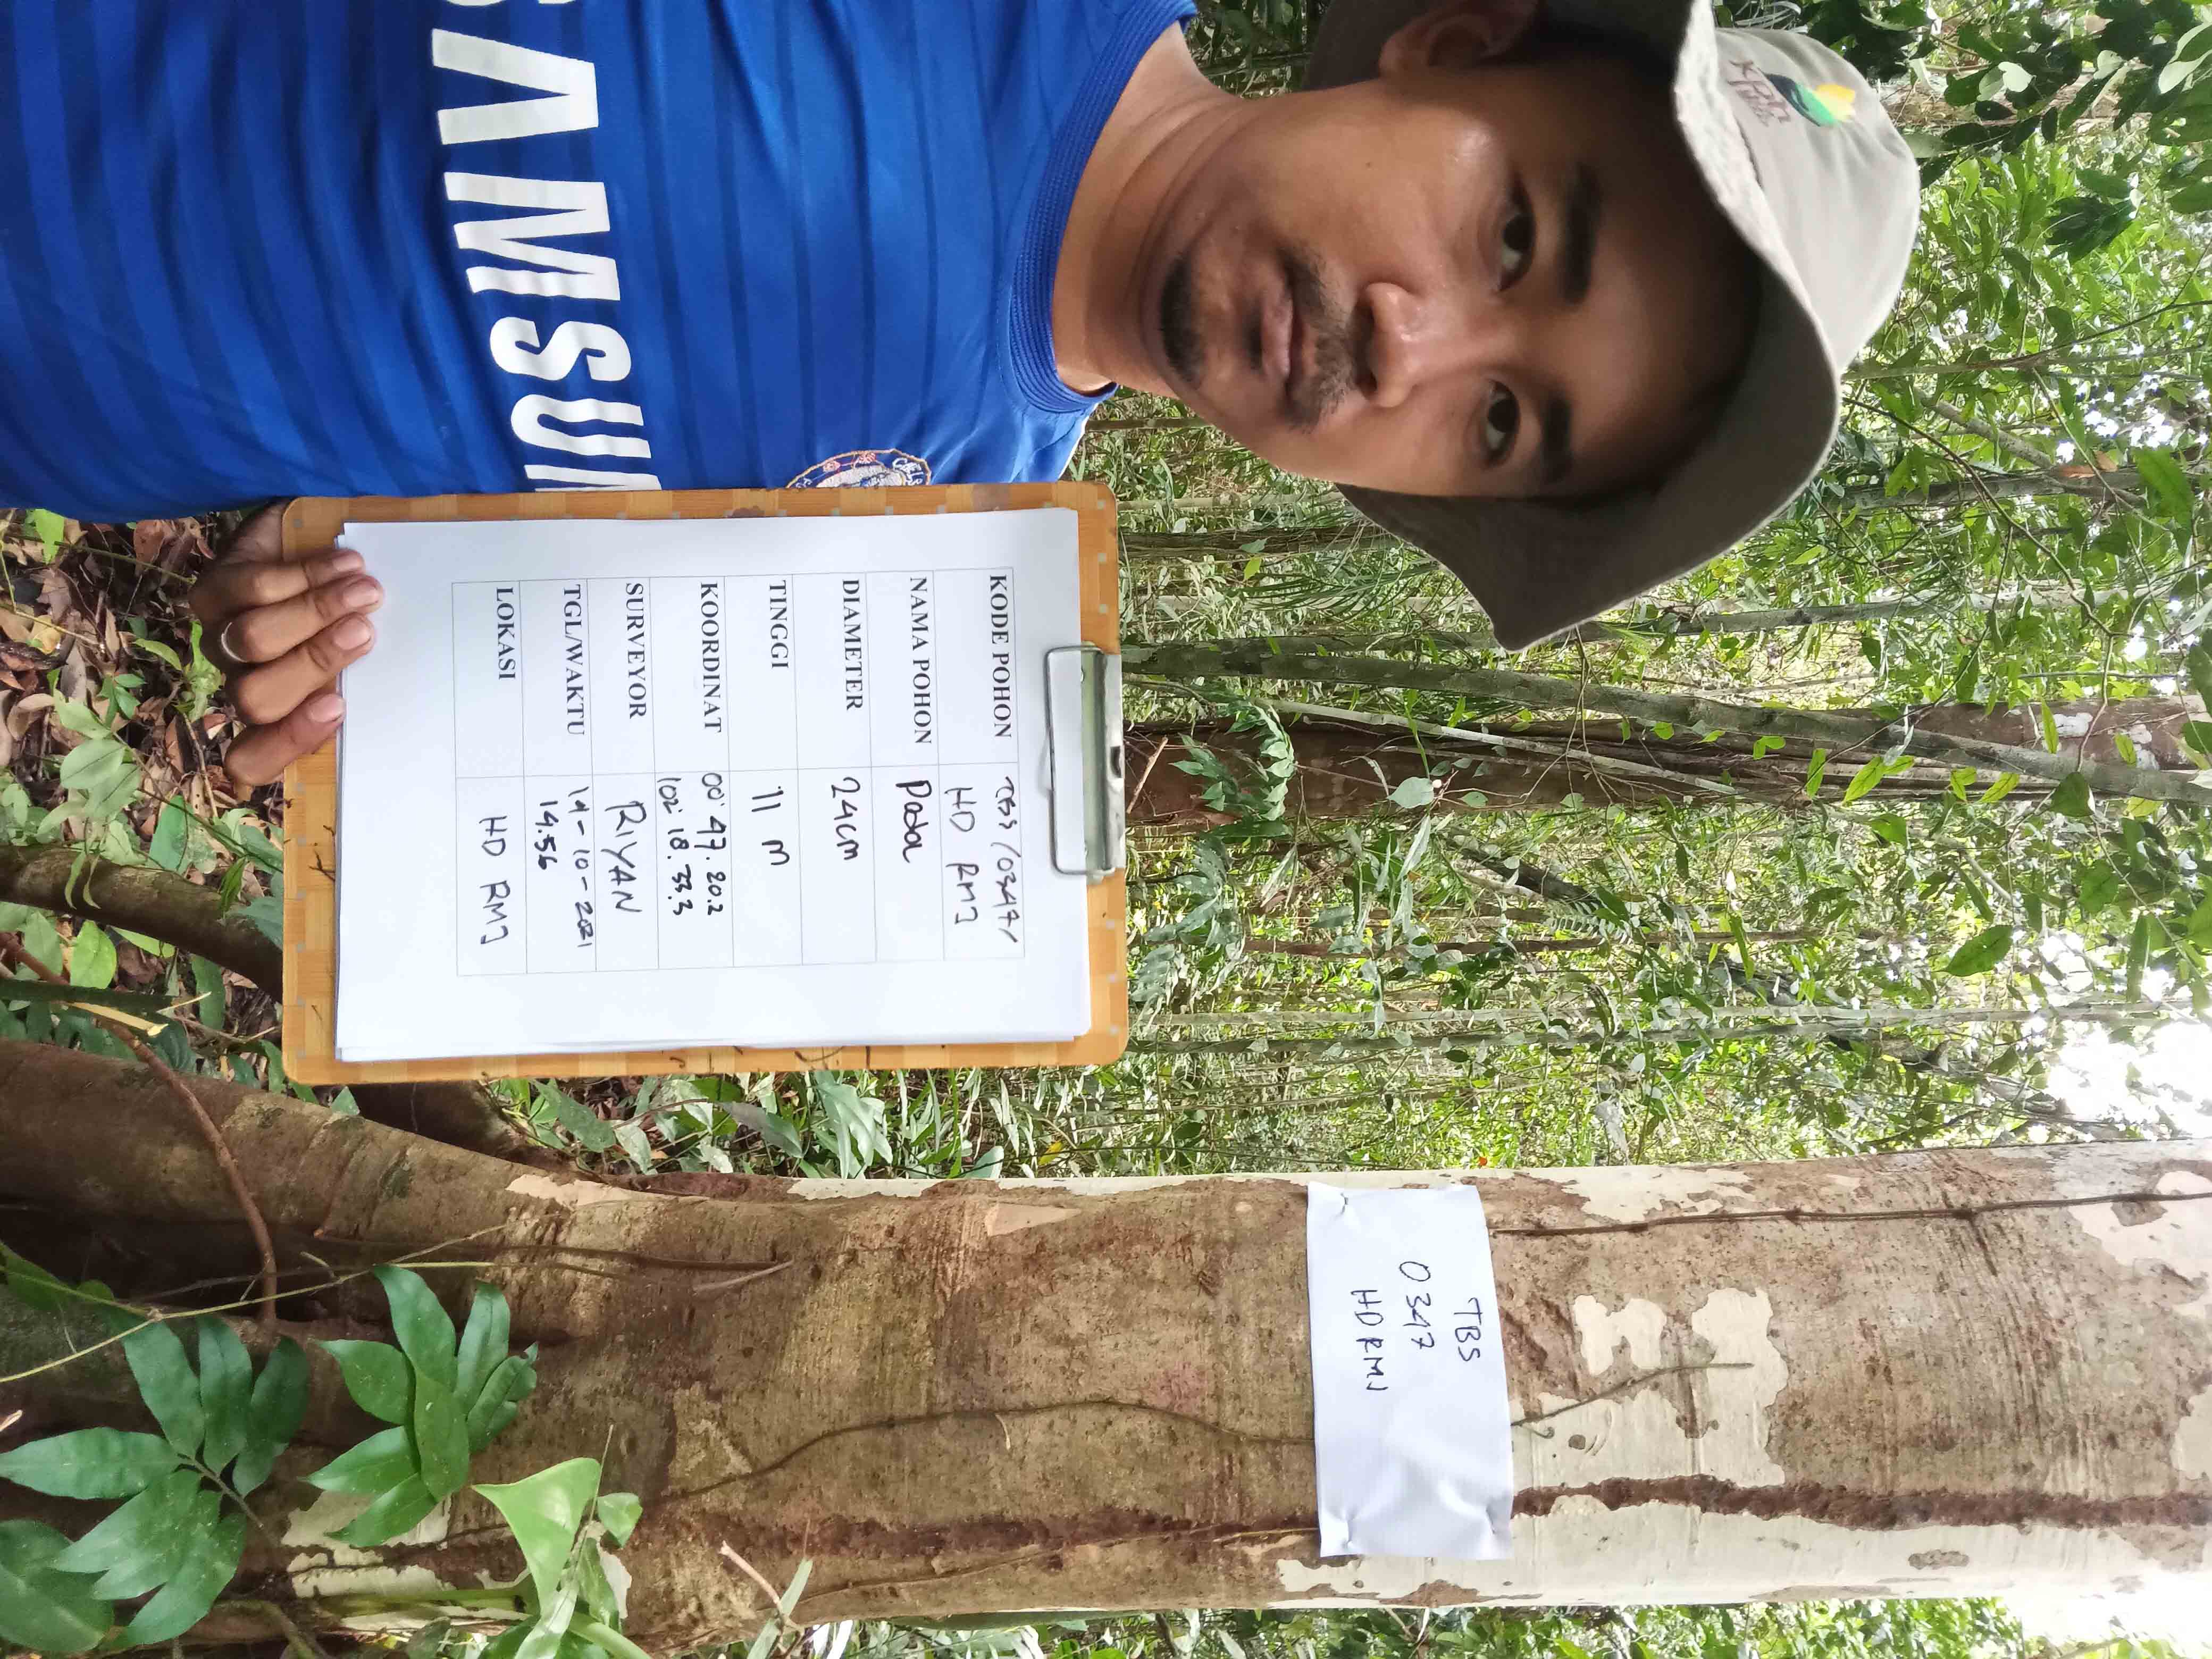 SAMSUN
KODE POHON TBS/0347/
HD RMJ
NAMA POHON
DIAMETER 24cm
TINGGI 11 m
KOORDINAT 00° 47. 20.2
102° 18. 33.3
SURVEYOR RIYAN
TGL/WAKTU 14-10-2021
14.56
LOKASI HD RMJ
TBS
0347
HD RMJ